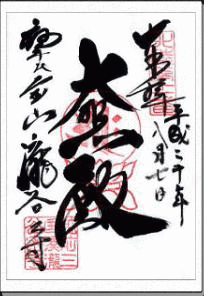 奉拝
平成二十年
八月七日
大悲殿
摩尼宝山瀧谷寺